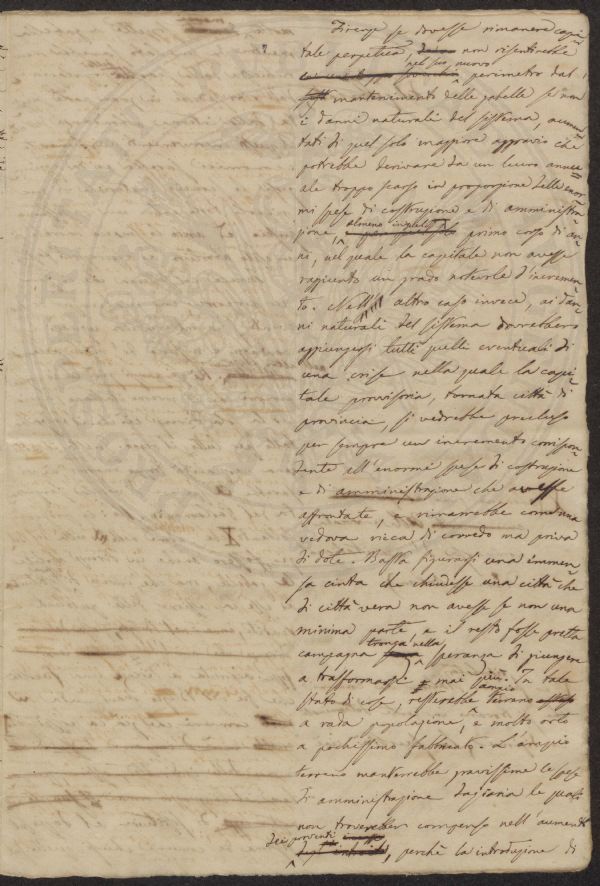 Firenze se dovesse rimanere capi-
tale perpetua, non risentirebbe
nel suo nuovo
perimetro dal
mantenimento delle gabelle se non
i danni naturali del sistema, aumen-
tati di quel solo maggiore aggravio che
potrebbe derivare da un lucro annu-
ale troppo scarso in proporzione delle enor-
mi spese di costruzione e di amministra-
zione, almeno in quel
primo corso di an-
ni, nel quale la capitale non avesse
raggiunto un grado notevole d'incremen-
to. Nell' altro caso invece, ai dan-
ni naturali del sistema dovrebbero
aggiungersi tutti quelli eventuali di
una crise nella quale la capi-
tale provvisoria, tornata città di
provincia, si vedrebbe precluso
per sempre un incremento corrispon-
dente all'enorme spese di costruzione
e di amministrazione che avesse
affrontate, e rimarrebbe come una
vedova ricca di corredo ma priva
di dote. Basta figurarsi una immen-
sa cinta che chiudesse una città che
di città vera non avesse se non una
minima parte, e il resto fosse pretta
campagna troncà nella
speranza di giungere
a trasformarsi mai più. In tale
stato di cose, resterebbe ampio terreno
a rada popolazione, e molto orto
a pochissimo fabbricato. L'ampio
terreno manterrebbe gravissime le spese
di amministrazione daziaria le quali
non troverebber compenso nell'aumento
dei proventi
, perchè la introduzione di